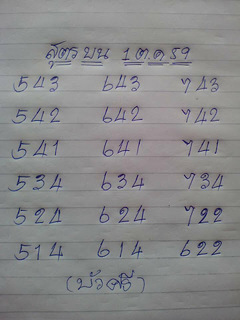 สูตร บน 1 ต.ค 59
543 643 743
542 642 742
541 641 741
534 634 734
524 624 722
514 614 622
(บัวศรี)